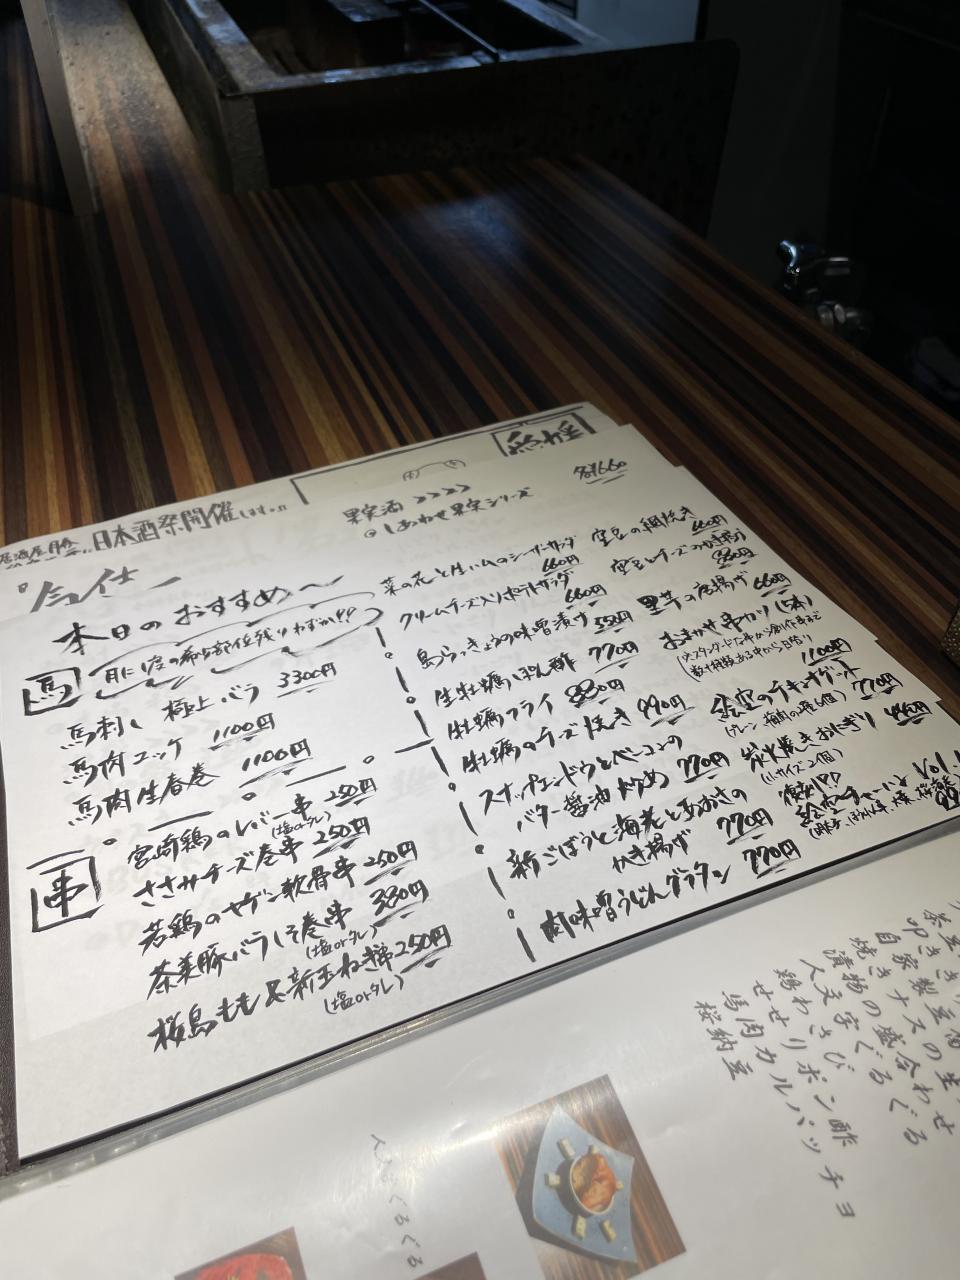 日本酒祭開催します!!
果実酒 >>>>
しあわせ果実シリーズ
各¥660
本日のおすすめ〜
馬
馬刺し 極上バラ 3300円
馬肉ユッケ 1100円
馬肉生春巻 1100円
串
宮崎鶏のレバー串 250円
(塩orタレ)
ささみチーズ巻串 250円
若鶏のヤゲン軟骨串 250円
茶美豚バラしそ巻串 330円
(塩orタレ)
桜島もも&新玉ねぎ串 250円
(塩orタレ)
菜の花と生ハムのシーザーサラダ
660円
クリームチーズ入りポテトサラダ
660円
島らっきょうの味噌漬け 550円
生牡蠣ぽん酢 770円
牡蠣フライ 880円
牡蠣のチーズ焼き 990円
スナップエンドウとベーコンの
バター醤油炒め 770円
新ごぼうと海老とあおさの
かき揚げ 770円
肉味噌うどんグラタン 770円
空豆の網焼き
660円
空豆とチーズのかき揚げ
880円
里芋の唐揚げ 660円
おまかせ串カツ(5本)
1100円
のチキンナゲット
770円
炭火焼きおにぎり 440円
(小サイズ2個)
復刻!!
自家製豆腐
叩き
焼きナスの生
漬物の盛合わせ
人文字ぐるぐる
せせりポン酢
鶏わさび
馬肉カルパッチョ
桜納豆
人文字ぐるぐる